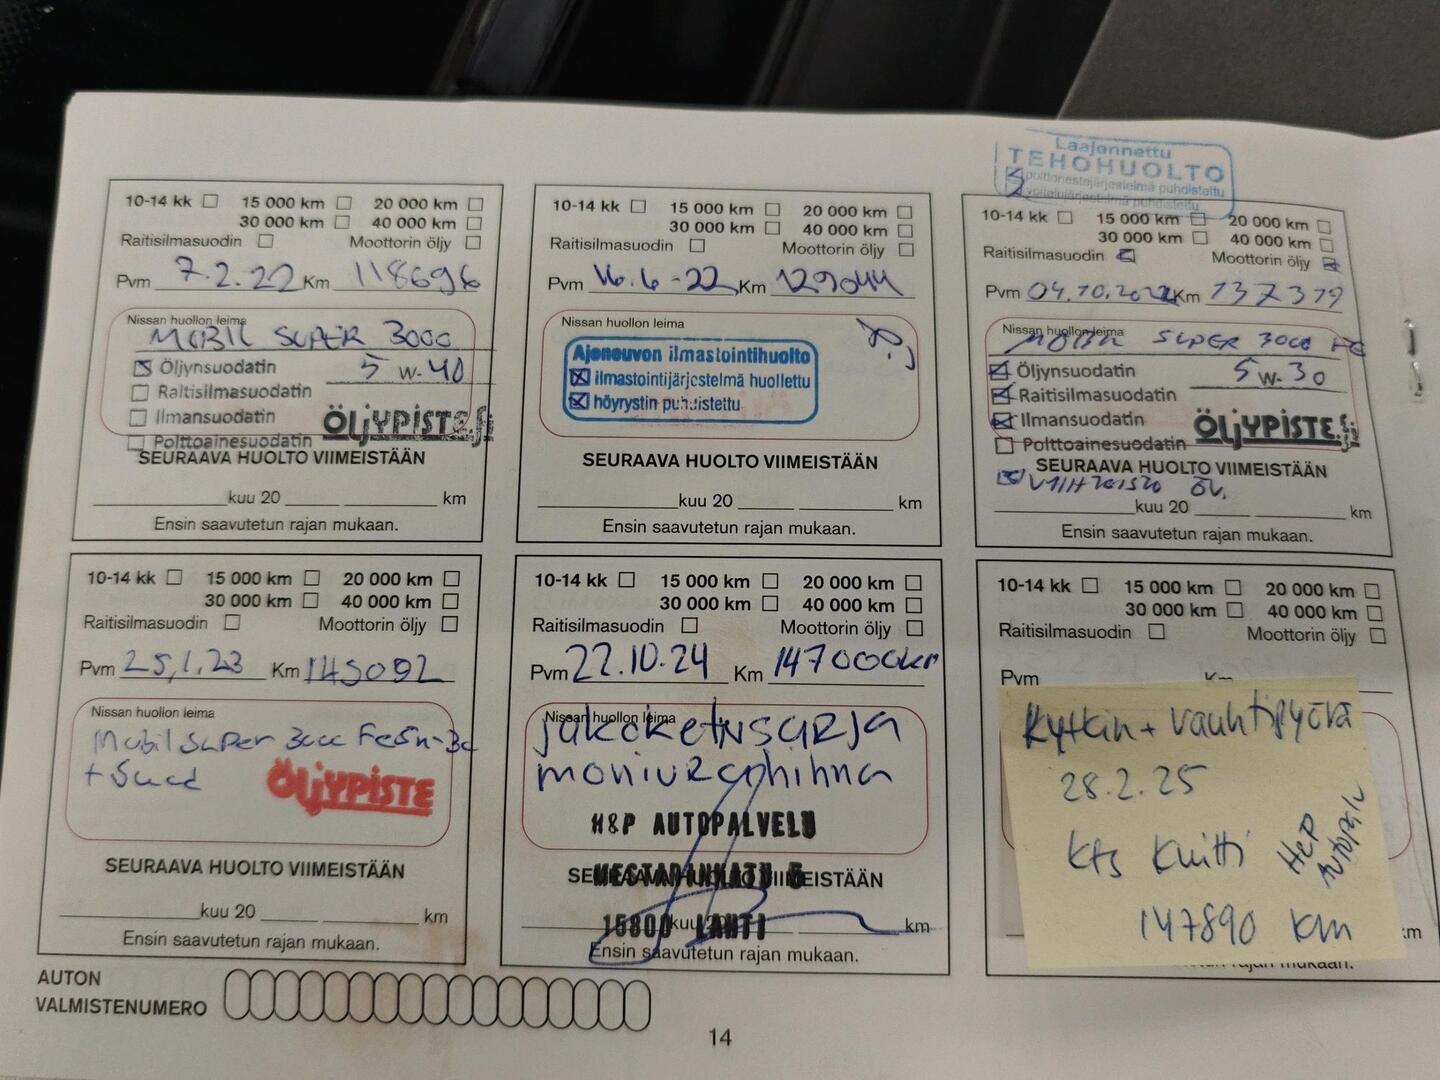 Laajennettu
TEHOHUOLTO
polttonestejärjestelmä puhdistettu
voitelujärjestelmä puhdistettu
10-14 kk 15 000 km 20 000 km
30 000 km 40 000 km
Raitisilmasuodin Moottorin öljy
Pvm 7.2.22 Km 118696
Nissan huollon leima
MOBIL SUPER 3000
Öljynsuodatin 5 W-40
Raitisilmasuodatin
Ilmansuodatin ÖLJYPISTE.fi
Polttoainesuodatin
SEURAAVA HUOLTO VIIMEISTÄÄN
kuu 20 km
Ensin saavutetun rajan mukaan.
10-14 kk 15 000 km 20 000 km
30 000 km 40 000 km
Raitisilmasuodin Moottorin öljy
Pvm 16.6-22 Km 129044
Nissan huollon leima
Ajoneuvon ilmastointihuolto
ilmastointijärjestelmä huollettu
höyrystin puhdistettu
SEURAAVA HUOLTO VIIMEISTÄÄN
kuu 20 km
Ensin saavutetun rajan mukaan.
10-14 kk 15 000 km 20 000 km
30 000 km 40 000 km
Raitisilmasuodin Moottorin öljy
Pvm 04.10.2022 Km 137319
Nissan huollon leima
SUPER 3000 FE
Öljynsuodatin 5W-30
Raitisilmasuodatin
Ilmansuodatin ÖLJYPISTE.fi
Polttoainesuodatin
SEURAAVA HUOLTO VIIMEISTÄÄN
VAIHTEISTO ÖL.
kuu 20 km
Ensin saavutetun rajan mukaan.
10-14 kk 15 000 km 20 000 km
30 000 km 40 000 km
Raitisilmasuodin Moottorin öljy
Pvm 25.1.23 Km 145092
Nissan huollon leima
Mobil Super 3000 Fe 5W-30
+ Suod
ÖLJYPISTE
SEURAAVA HUOLTO VIIMEISTÄÄN
kuu 20 km
Ensin saavutetun rajan mukaan.
10-14 kk 15 000 km 20 000 km
30 000 km 40 000 km
Raitisilmasuodin Moottorin öljy
Pvm 22.10.24 Km 147000km
Nissan huollon leima
jakoketjusarja
moniurahihna
H&P AUTOPALVELU
MESTARINKATU 5
SEURAAVA HUOLTO VIIMEISTÄÄN
15800 LAHTI
kuu 20 km
Ensin saavutetun rajan mukaan.
10-14 kk 15 000 km 20 000 km
30 000 km 40 000 km
Raitisilmasuodin Moottorin öljy
Pvm Km
Kytkin + vauhtipyörä
28.2.25
kts kuitti
H&P
147890 km
km
rajan mukaan.
AUTON
VALMISTENUMERO
14